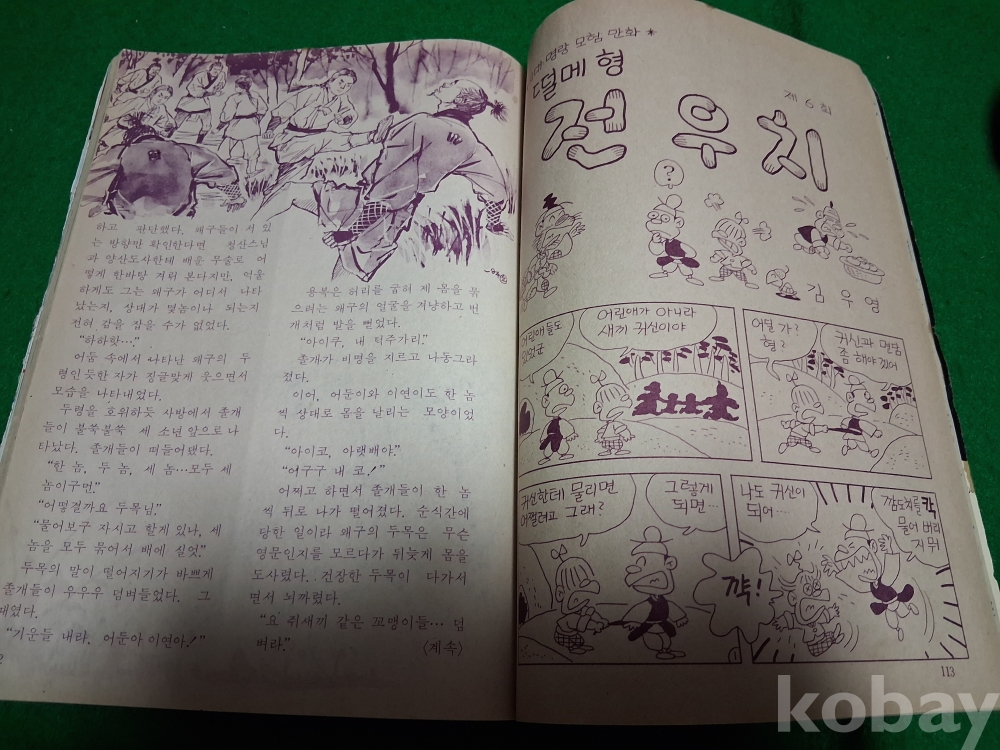 하고 판단했다. 왜구들이 서 있
는 방향만 확인한다면 청산스님
과 양산도사한테 배운 무술로 어
떻게 한바탕 겨뤄 본다지만, 억울
하게도 그는 왜구가 어디서 나타
났는지, 상대가 몇놈이나 되는지
전혀 감을 잡을 수가 없었다.
“하하핫…”
어둠 속에서 나타난 왜구의 두
령인듯한 자가 징글맞게 웃으면서
모습을 나타내었다.
두령을 호위하듯 사방에서 졸개
들이 불쑥불쑥 세 소년 앞으로 나
타났다. 졸개들이 떠들어댔다.
“한 놈, 두 놈, 세 놈…모두 세
놈이구먼.”
“어떻걸까요 두목님.”
“물어보구 자시고 할게 있나, 세
놈을 모두 묶어서 배에 실엇.”
두목의 말이 떨어지기가 바쁘게
졸개들이 우우우 덤벼들었다. 그
때였다.
“기운들 내라. 어둔아 이연아!”
2
용북은 허리를 굽혀 제 몸을 묶
으려는 왜구의 얼굴을 겨냥하고 번
개처럼 발을 뻗었다.
“아이쿠, 내 턱주가리.”
졸개가 비명을 지르고 나동그라
졌다.
이어, 어둔이와 이연이도 한 놈
씩 상대로 몸을 날리는 모양이었
다.
“아이코, 아랫배야.”
“어구구 내 코!”
어찌고 하면서 졸개들이 한 놈
씩 뒤로 나가 떨어졌다. 순식간에
당한 일이라 왜구의 두목은 무슨
영문인지를 모르다가 뒤늦게 몸을
도사렸다. 건장한 두목이 다가서
면서 뇌까렸다.
“요 쥐새끼 같은 꼬맹이들… 덤
벼라.”
〈계속〉
명랑 모험 만화 *
덜메 형
제 6 회
전 우 치
?
김 우 영
어린애들도
있었군
어린애가 아니라
새끼 귀신이야
어딜 가?
형?
귀신과 면담
좀 해야겠어
귀신한테 물리면
어쩔려고 그래?
그렇게
되면…
나도 귀신이
되어…
깜도치를 칵
물어 버리
지뭐
깍!
113
kobay